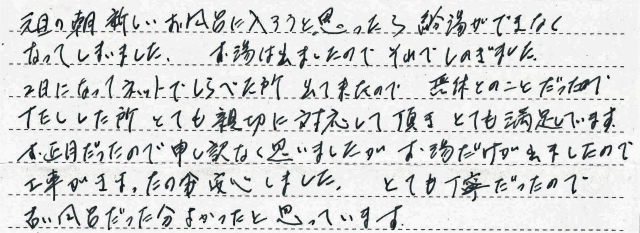 元旦の朝 新しいお風呂に入ろうと思ったら 給湯ができなく
なってしまいました。 お湯は出ましたので それでしのぎました。
2日になってネットでしらべた所 出て来たので 無休とのことだったので
TELした所 とても親切に対応して頂き とても満足しています
お正月だったので申し訳なく思いましたが お湯だけが出ましたので
工事がきまった分安心しました。 とても丁寧だったので
古い風呂だった分よかったと思っています